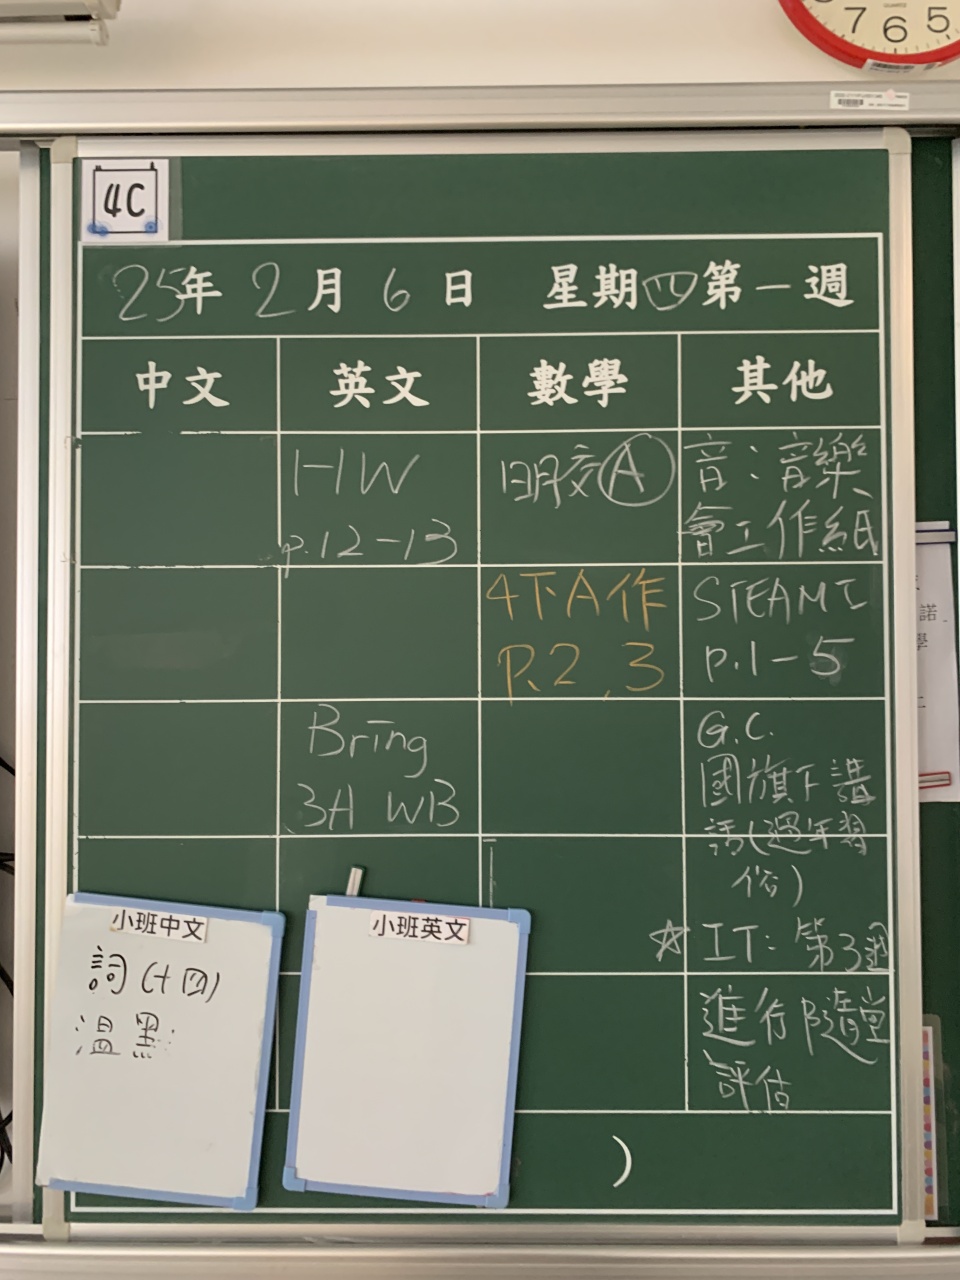 7 6 5
4C
25年 2月 6日 星期四第一週
中文 英文 數學 其他
HW
p.12-13
明交Ⓐ
音：音樂
會工作紙
4下A作
P.2,3
STEAM工
p.1-5
Bring
3A WB
G.C.
國旗下講
話(過年習
俗)
☆ IT: 第3週
進行隨堂
評估
小班中文
詞(十四)
溫默
小班英文
)